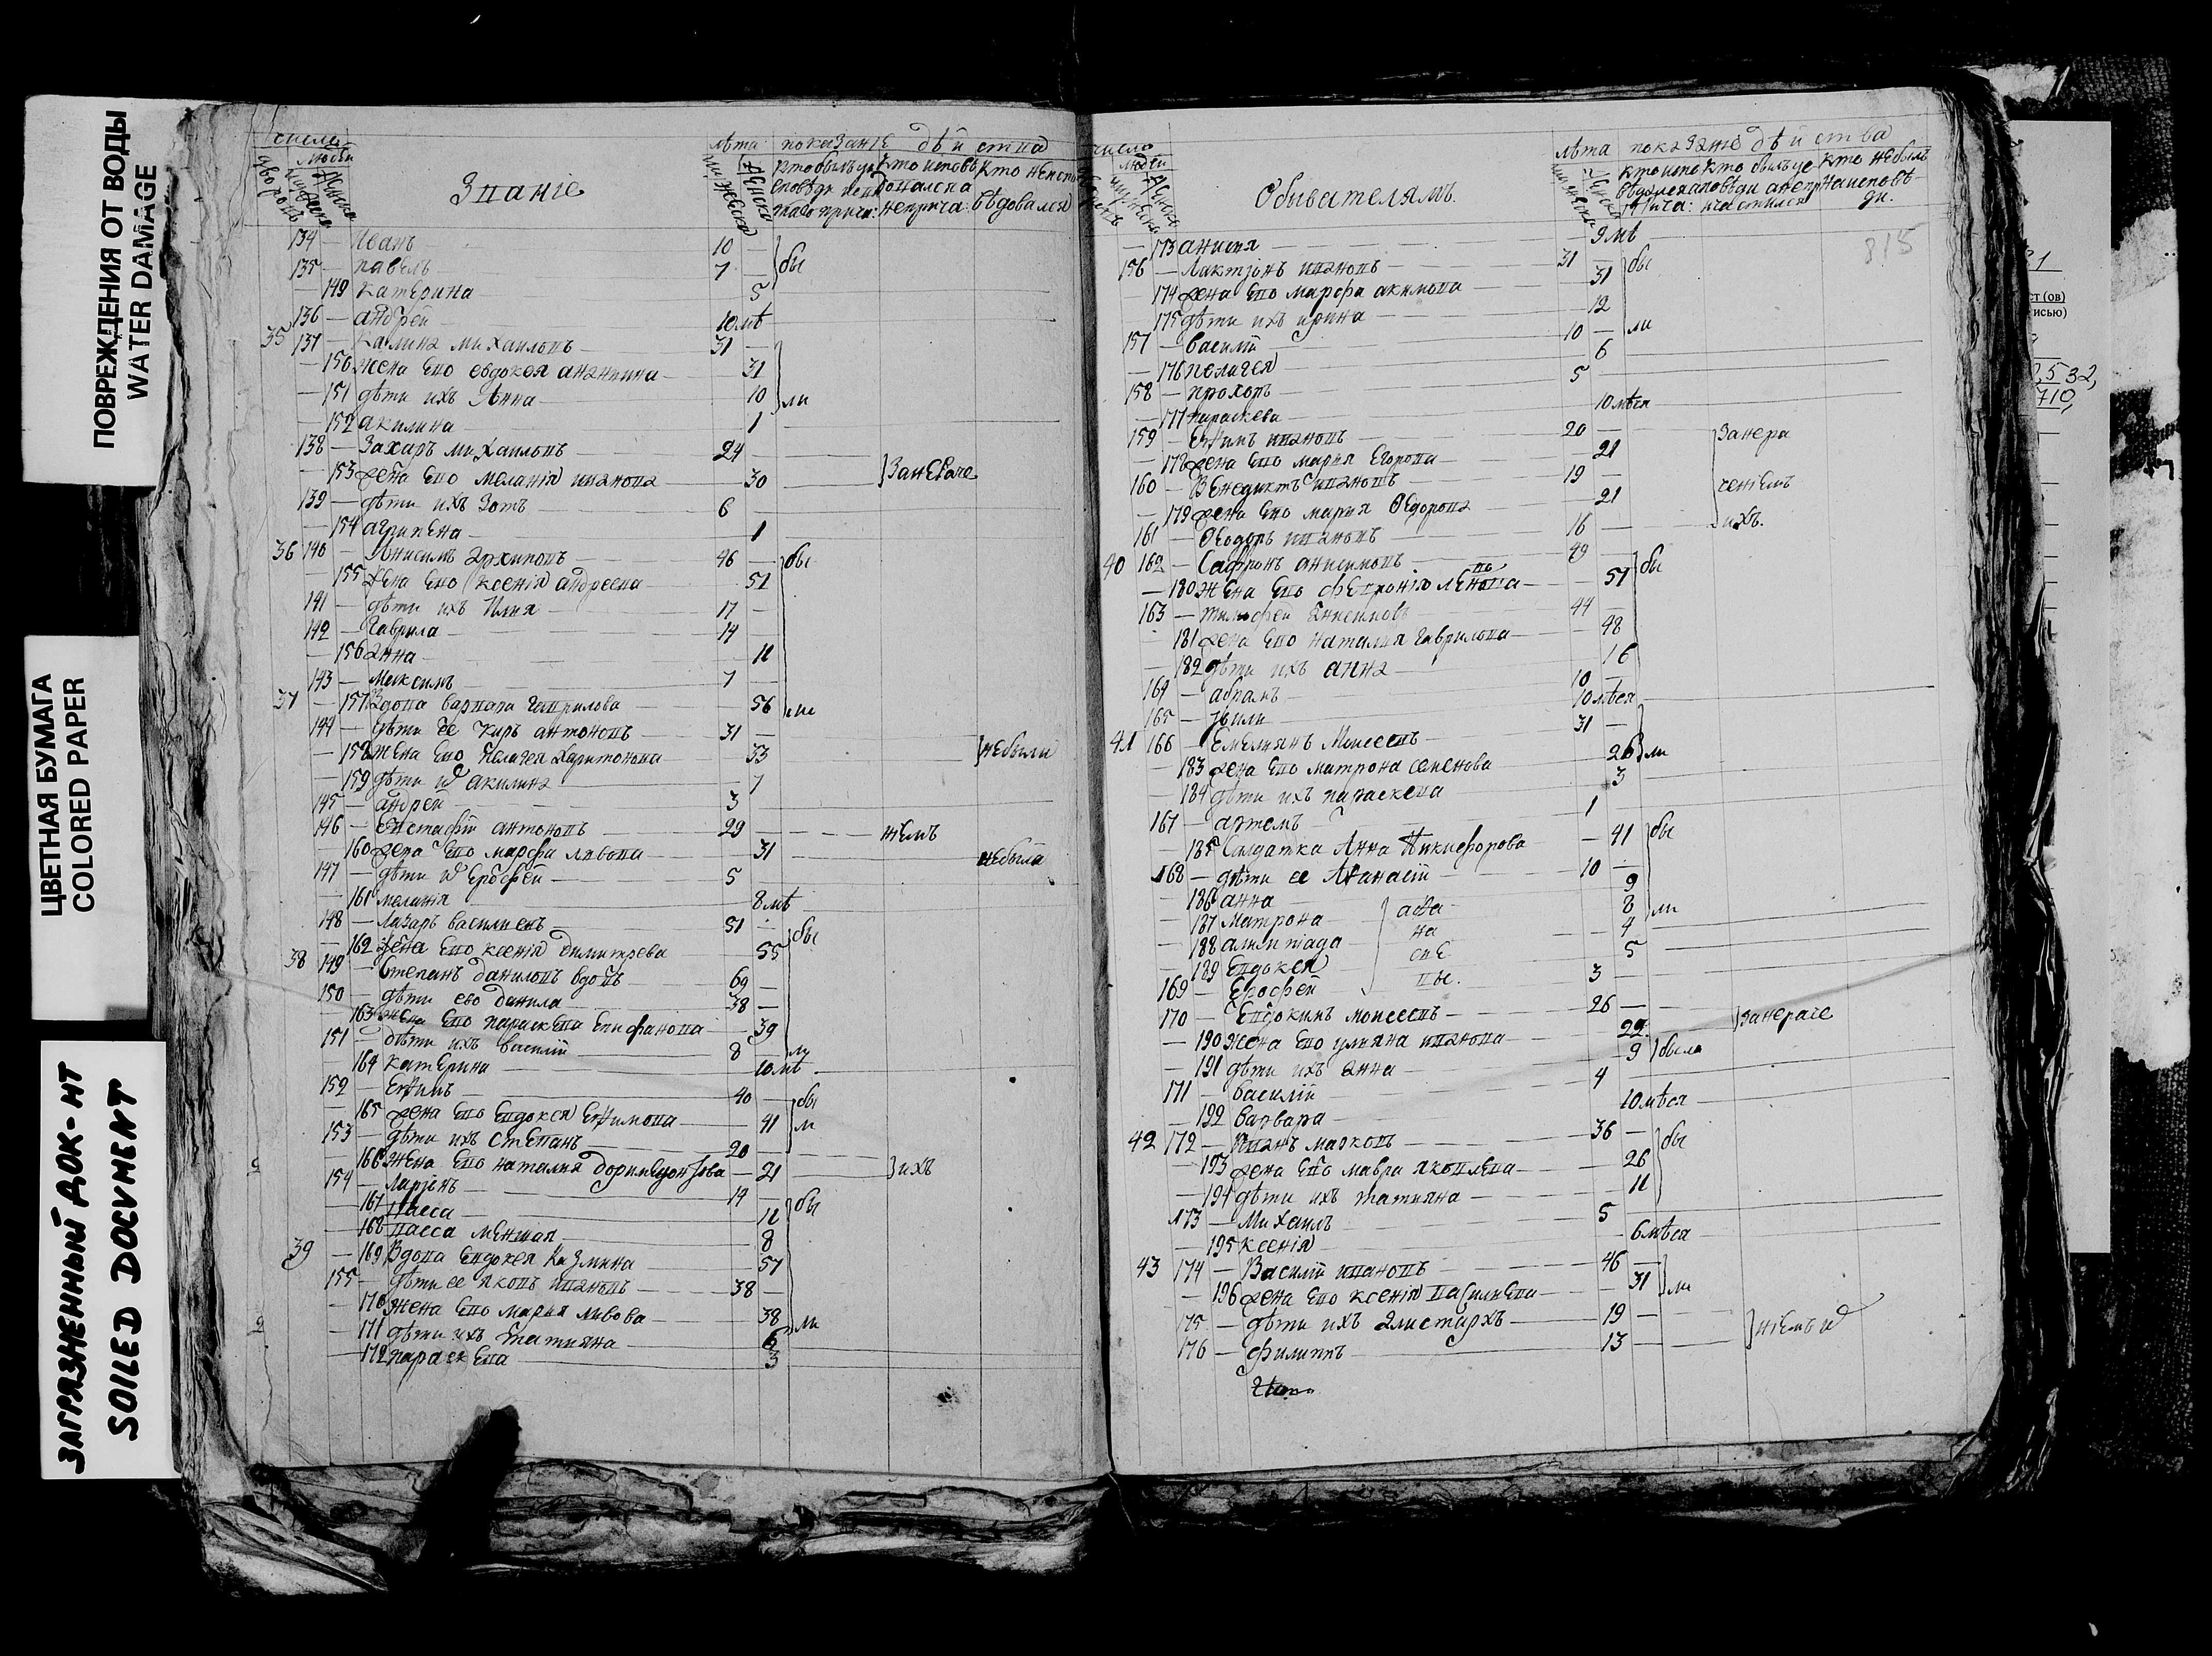 ПОВРЕЖДЕНИЯ ОТ ВОДЫ
WATER DAMAGE
ЦВЕТНАЯ БУМАГА
COLORED PAPER
ЗАГРЯЗНЕННЫЙ ДОК-НТ
SOILED DOCUMENT
число лѣта показанІЕ дѣйства
Званіе
134 — Іванъ 10 — бы
135 — павелъ 7 —
— 149 катЕрина 5
136 — андрей 10 мѣ
35 137 — калина михаиловъ 31 —
— 150 жена Ево евдокея ананьина 31
— 151 дѣти ихъ Анна 10 ли
— 152 акилина 1
138 — Захаръ михаиловъ 24
— 153 жена Ево меланія иванова 30 ЗанЕраче
139 — дѣти ихъ Зотъ 6
— 154 агрипЕна 1
36 140 — Анисимъ архиповъ 46 — бы
— 155 жена Ево ксенія андреева 51
141 — дѣти ихъ Илья 17 —
142 — Гаврила 14
— 156 анна 11
143 — Максимъ 7 —
37 — 157 Вдова варвара гаврилова 56 ли
144 — дѣти ее киръ антоновъ 31 —
— 158 жена Ево Пелагея Харитонова 33 нЕбыли
— 159 дѣти ихъ акилина 7
145 — андрей 3
146 — ЕвстафІй антоновъ 29 — нІЕмъ
— 160 жена Ево марфа львова 31 нЕбыла
147 — дѣти ихъ Ерофей 5
— 161 меланія 8 мѣ
148 — Лазаръ василиевъ 51 — бы
— 162 жена Ево ксенія димитрева 55
38 149 — Степанъ даниловъ вдовъ 69 —
150 — дѣти ево данила 38 —
— 163 жена Ево параскева Епифанова 39
151 — дѣти ихъ василій 8 ли
164 катЕрина 10 мѣ
152 — Ефимъ 40 — бы
— 165 жена Ево Евдокея Ефимова 41 ли
153 — дѣти ихъ стЕпанъ 20 —
— 166 жена Ево наталия 21 ихъ
154 — Ларіонъ 14 бы
— 167 васса 11
— 168 васса меншая 8
39 — 169 Вдова Евдокея Козмина 57
155 — дѣти ее яковъ ивановъ 38 —
— 170 жена Ево марья львова 38 ли
— 171 дѣти ихъ татияна 6
— 172 параскЕва 3
число лѣта показаніе дѣйства
Обывателямъ.
815
— 173 анисья 9 мѣ
156 — Лактіонъ ивановъ 31 — бы
174 жена Ево марфа акимова 31
175 дѣти ихъ ирина 12
157 — василій 10 — ли
— 176 пелагея 6
158 — прохоръ 5
— 177 параскева 10 мѣся
159 — Ефимъ ивановъ 20 — Занера
— 178 жена Ево марья Егорова 21
160 — Венедиктъ ивановъ 19 ченіемъ
— 179 жена Ево марья Ѳедорова 21
161 — Ѳеодоръ ивановъ 16 — ихъ.
40 162 — Сафронъ анисимовъ 49 — бы
— 180 жена Ево 51
163 — тимофей Анисимовъ 44 —
181 жена Ево наталия гаврилова 48
— 182 дѣти ихъ анна 16
164 — абрамъ 10 —
165 — 10 мѣся
41 166 — Емелиянъ Моисеевъ 31 —
— 183 жена Ево матрона семенова 26 ли
— 184 дѣти ихъ параскева 3
167 — артемъ 1
— 185 Салдатка Анна Никифорова 41 бы
168 — дѣти ее Афанасій 10 —
— 186 анна 9
— 187 Матрона афа 8 ли
— 188 алимпіада на 4
— 189 Евдокея сиЕ 5
169 — Ерофей вы. 3
170 — Евдокимъ моисеевъ 26 — занераче
— 190 жена Ево ульяна иванова 22
— 191 дѣти ихъ анна 9 была
171 — василій 4
— 192 варвара 10 мѣся
42 172 — Иванъ марковъ 36 — бы
— 193 жена Ево мавра яковлЕва 26
— 194 дѣти ихъ татияна 11
173 — Михаилъ 5
— 195 ксенія 6 мѣся
43 174 — Василій ивановъ 46 —
— 196 жена Ево ксенія василиЕва 31 ли
175 — дѣти ихъ алистархъ 19 —
176 — филиппъ 13 — нІЕмъ